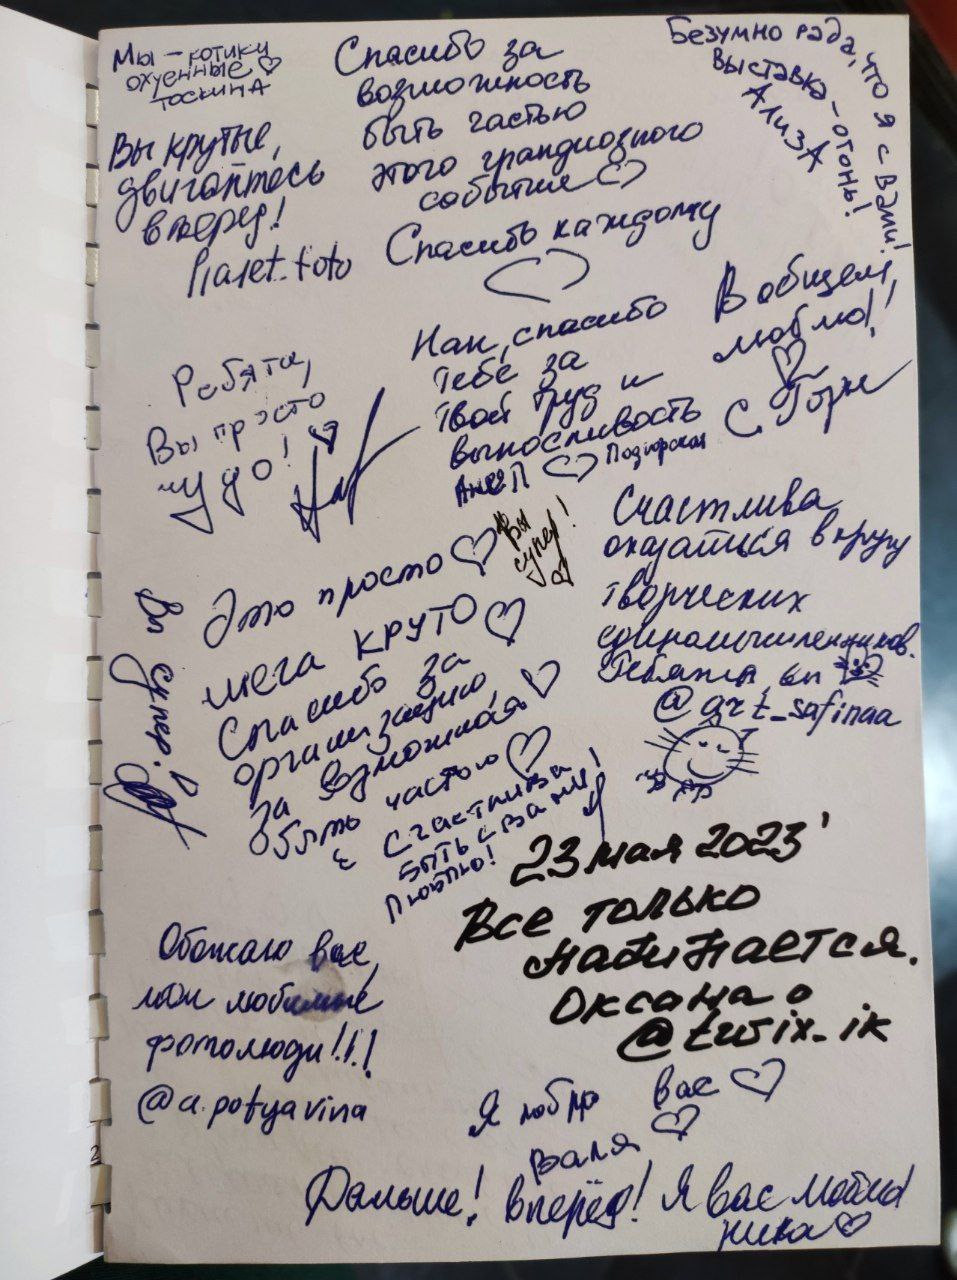 Мы - котики
охуенные
тоскина
Спасибо за
возможность
быть частью
этого грандиозного
события
Спасибо каждому
Безумно рада, что я с вами!
Выставка - огонь!
Ализа
Вы крутые,
двигайтесь
вперед!
Planet.toto
Нан, спасибо
тебе за
твой труд и
выносливость
Подгорская
В общем,
люблю!
Ребята,
Вы просто
чудо!
Вы
супер!
Счастлива
оказаться в кругу
творческих
единомышленников.
Ребята вы
@art_safinaa
Это просто
мега круто
Спасибо за
организацию,
за возможная
быть частью
Вы супер!
Счастлива
быть с вами!
Люблю!
23 мая 2023
Все только
начинается.
Оксана
@twix_ik
Обожаю вас,
мои любимые
фотолюди!!!!
@a.potyavina
Я люблю вас
Валя
Дальше! вперёд! Я вас люблю
ника
2